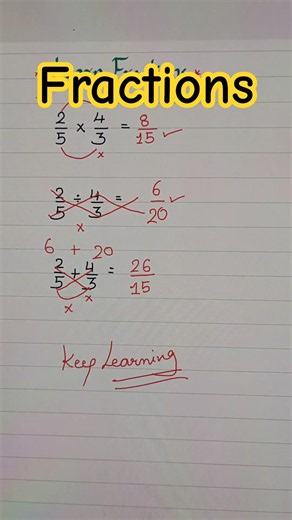 Fractions
2/5 x 4/3 = 8/15 ✓
x
2/5 ÷ 4/3 = 6/20 ✓
x
6 + 20
2/5 + 4/3 = 26/15
x x
Keep Learning